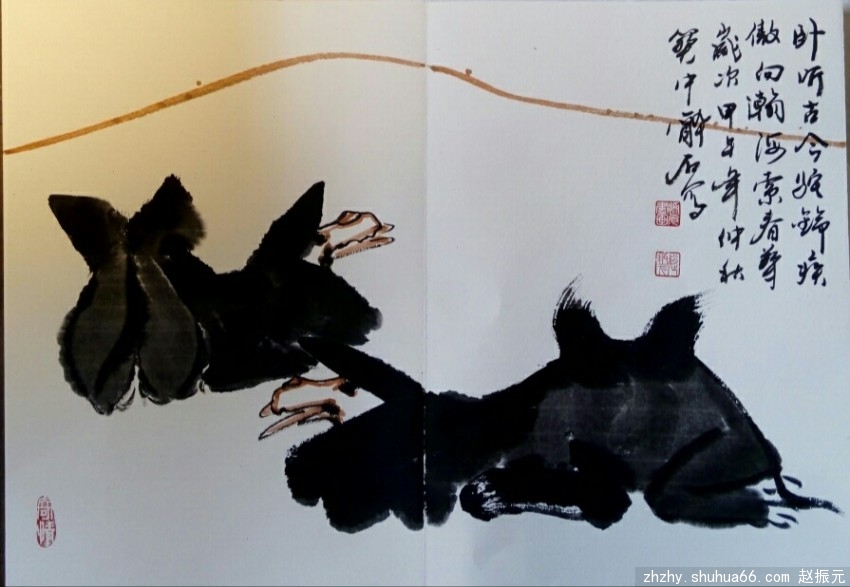 卧听古今驼铃疾
傲向瀚海索春
歲次甲午年仲秋
中石寫
zhzhy.shuhua66.com 赵振元